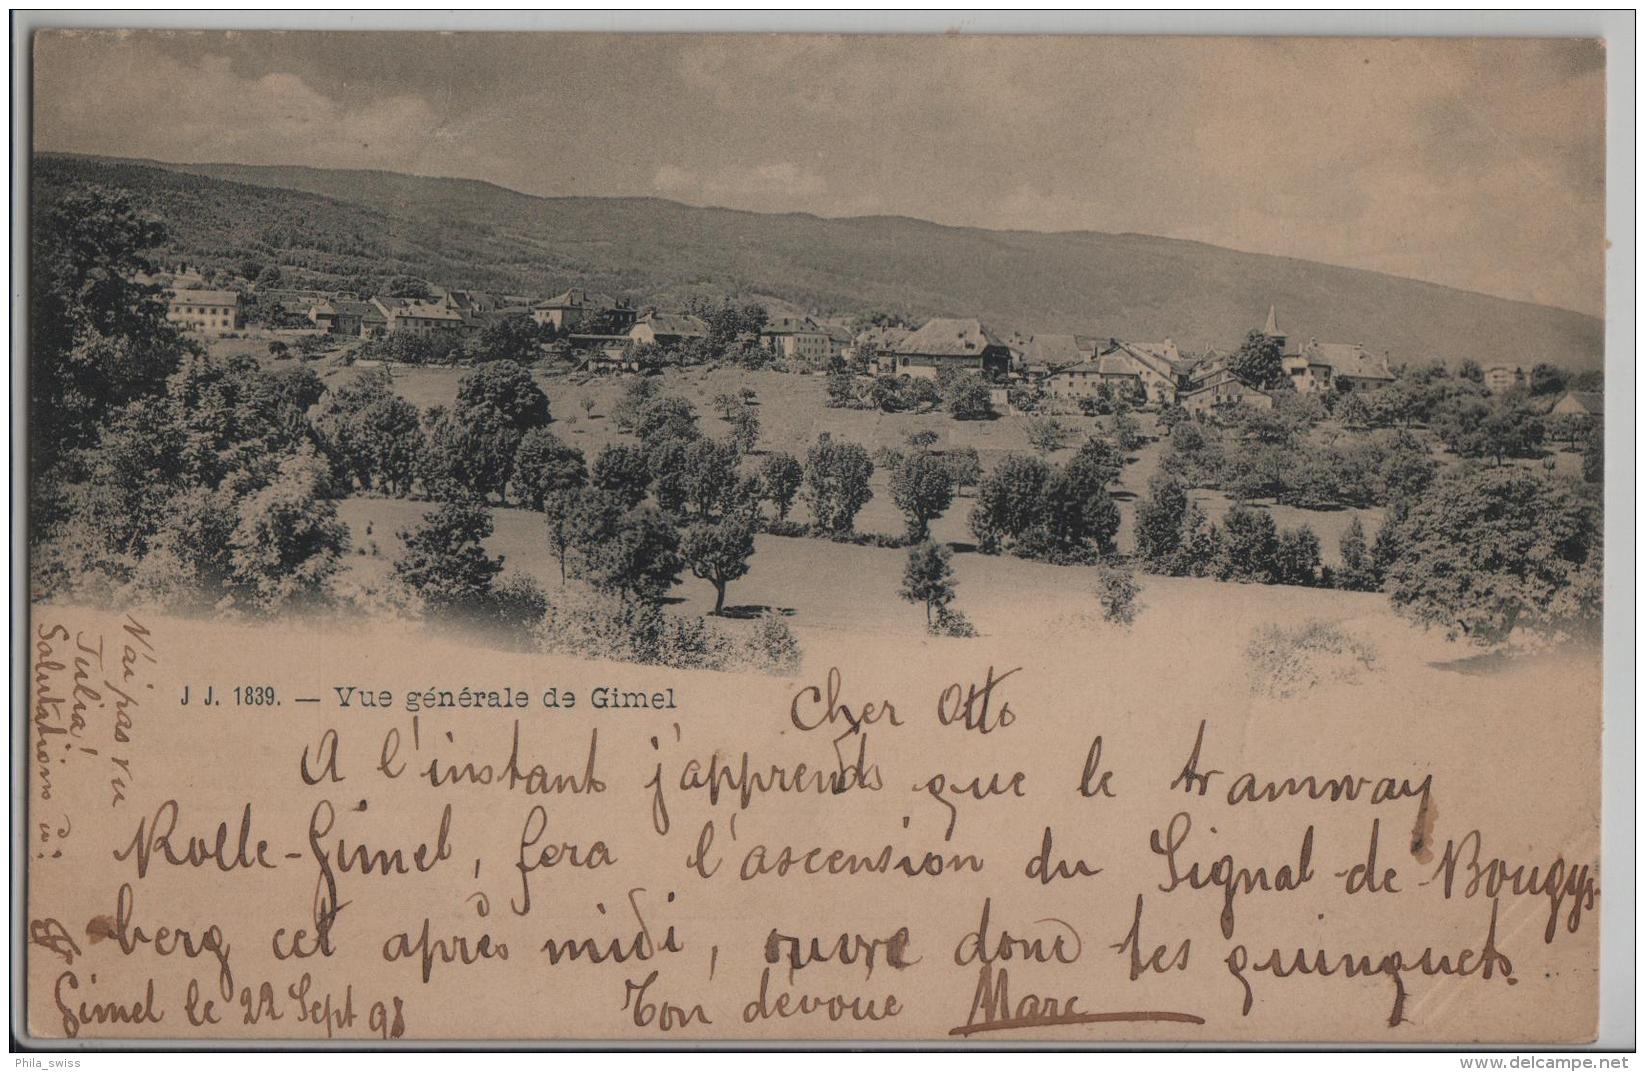 J J. 1839. — Vue générale de Gimel
Cher Otto
A l'instant j'apprends que le tramway
Rolle-Gimel, fera l'ascension du Signal-de-Bougy-
berg cet après midi, ouvre donc tes quinquets.
Ton dévoué Marc
Gimel le 22 Sept 98
N'ai pas vu
Julia!
Salutations à:
Phila_swiss
www.delcampe.net